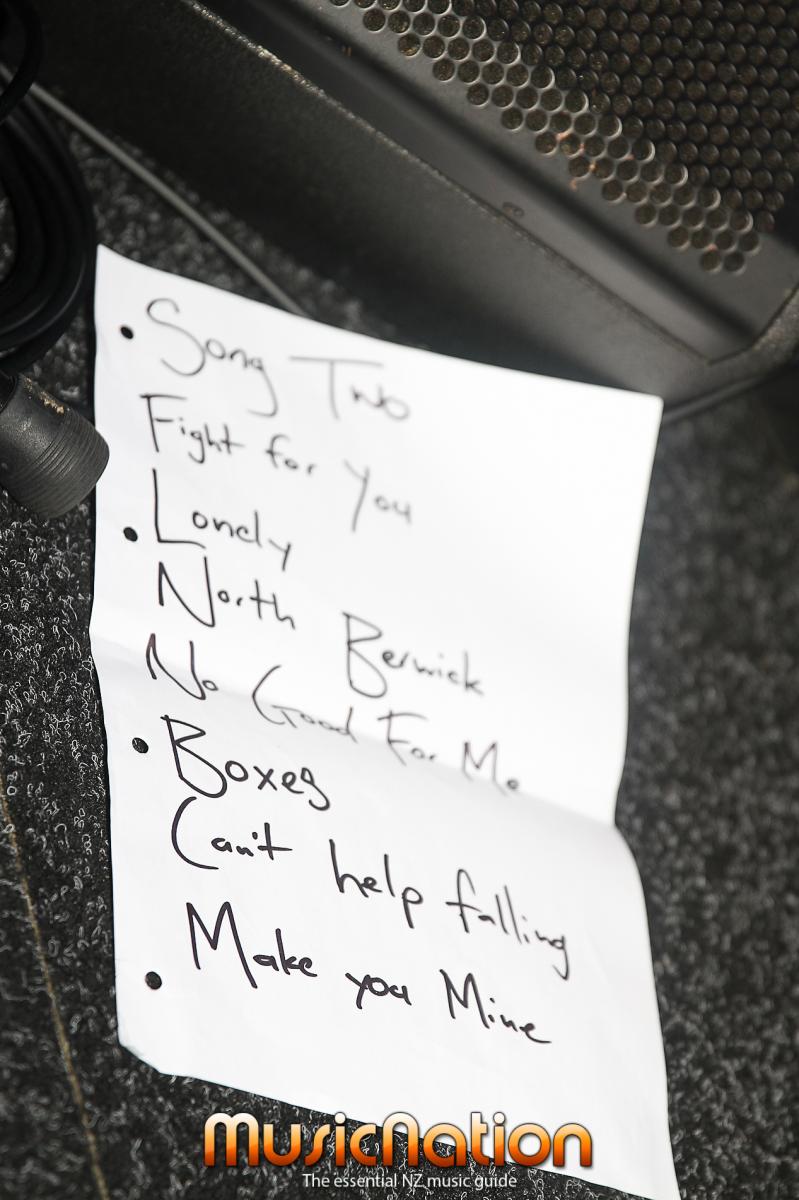 Song Two
Fight for You
Lonely
North Berwick
No Good For Me
Boxes
Can't help falling
Make you Mine
MusicNation
The essential NZ music guide